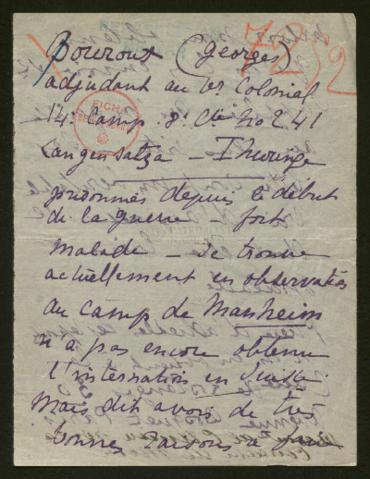 (Georges)
7252
adjudant au 6e Colonial
14e Camp. 8e Cie no 241
Langensalza - Thuringe
prisonnier depuis le début
de la guerre - fort
malade - se trouve
actuellement en observation
au camp de Manheim
n'a pas encore obtenu
l'internation en Suisse.
Mais dit avoir de très
bonnes raisons